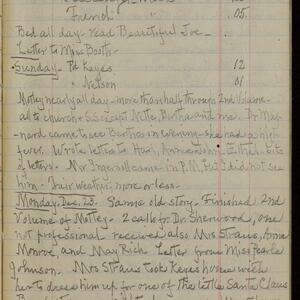 French " .05
Bed all day - Read Beautiful Joe -
Letter to Miss Booth -
Sunday - Pd Keyes 12
" Nelson 01
Motley nearly all day - more than half through 2nd Volume -
all to church & S.S. except Nette, Bertha and me. Dr May-
nard came to see Bertha in evening - she had a high
fever. Wrote letter to Hair, Annie Ethel
of letters - Mr Ingersoll came in P.M. but I did not see
him - Fair weather, more or less.
Monday, Dec. 23. Same old story. Finished 2nd
Volume of Motley - 2 calls for Dr. Sherwood, one
not professional received also Mrs Straus, Anna
Monroe, and May Rich. Letter from Miss Pearle
Johnson. Mrs Straus took Keyes home with
her to dress him up for one of the little Santa Claus